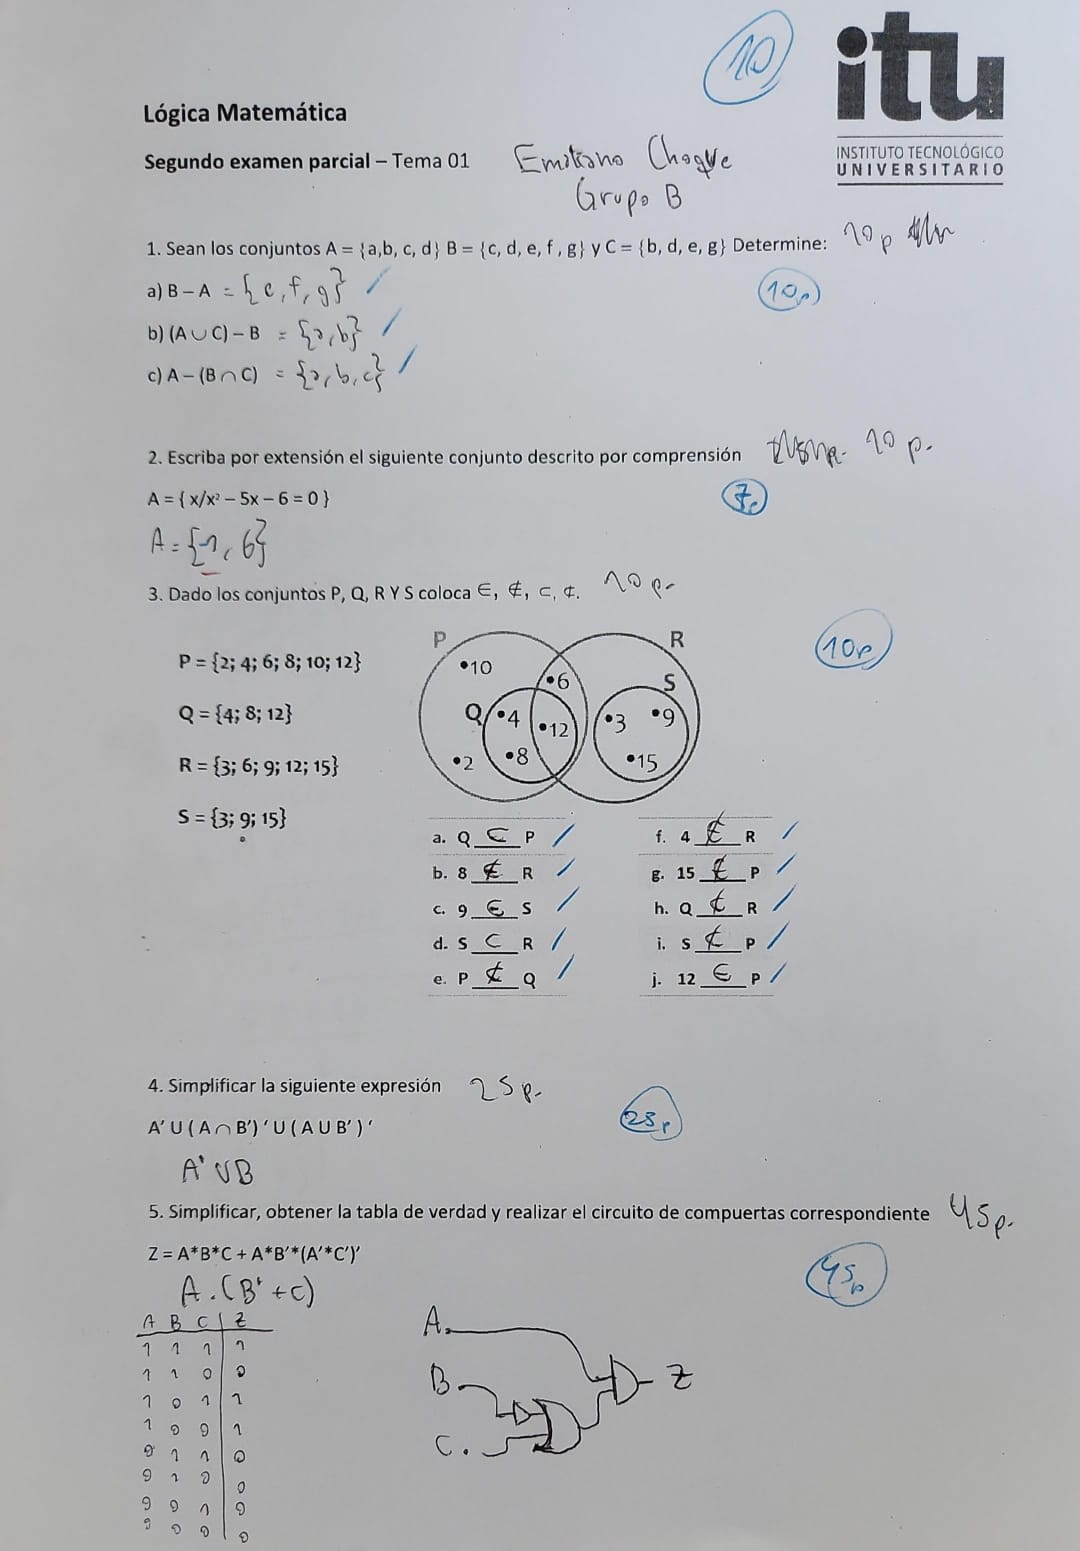 10
itu
INSTITUTO TECNOLÓGICO
UNIVERSITARIO
Lógica Matemática
Segundo examen parcial – Tema 01
Emiliano Choque
Grupo B
1. Sean los conjuntos A = {a,b, c, d} B = {c, d, e, f , g} y C = {b, d, e, g} Determine: 10 p
10p
a) B – A = {e, f, g}
b) (A ∪ C) – B = {a, b}
c) A – (B ∩ C) = {a, b, c}
2. Escriba por extensión el siguiente conjunto descrito por comprensión 10 p.
A = { x/x² – 5x – 6 = 0 }
7p
A = {-1, 6}
3. Dado los conjuntos P, Q, R Y S coloca ∈, ∉, ⊂, ⊄. 10 p.
10p
P = {2; 4; 6; 8; 10; 12}
Q = {4; 8; 12}
R = {3; 6; 9; 12; 15}
S = {3; 9; 15}
P R
•10 •6 S
Q •4 •12 •3 •9
•2 •8 •15
a. Q ⊂ P f. 4 ∉ R
b. 8 ∉ R g. 15 ∉ P
c. 9 ∈ S h. Q ⊄ R
d. S ⊂ R i. S ⊄ P
e. P ⊄ Q j. 12 ∈ P
4. Simplificar la siguiente expresión 25 p.
25p
A’ U ( A ∩ B’) ‘ U ( A U B’ ) ‘
A' ∪ B
5. Simplificar, obtener la tabla de verdad y realizar el circuito de compuertas correspondiente 45p.
Z = A*B*C + A*B’*(A’*C’)’
45p
A.(B' + C)
A B C Z
1 1 1 1
1 1 0 0
1 0 1 1
1 0 0 1
0 1 1 0
0 1 0 0
0 0 1 0
0 0 0 0
A.
B.
C.
Z